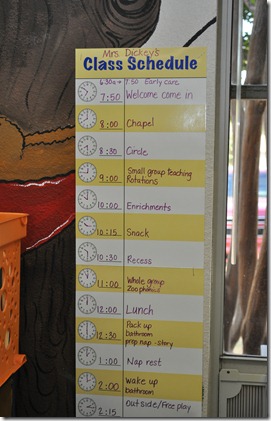 Mrs Dickey's
Class Schedule
6:30am 7:50 Early care
7:50 Welcome come in
8:00 Chapel
8:30 Circle
9:00 Small group teaching
Rotations
10:00 Enrichments
10:15 Snack
10:30 Recess
11:00 Whole group
Zoophonics
12:00 Lunch
12:30 Pack up
bathroom
prep nap - story
1:00 Nap rest
2:00 wake up
bathroom
2:15 outside/Free play